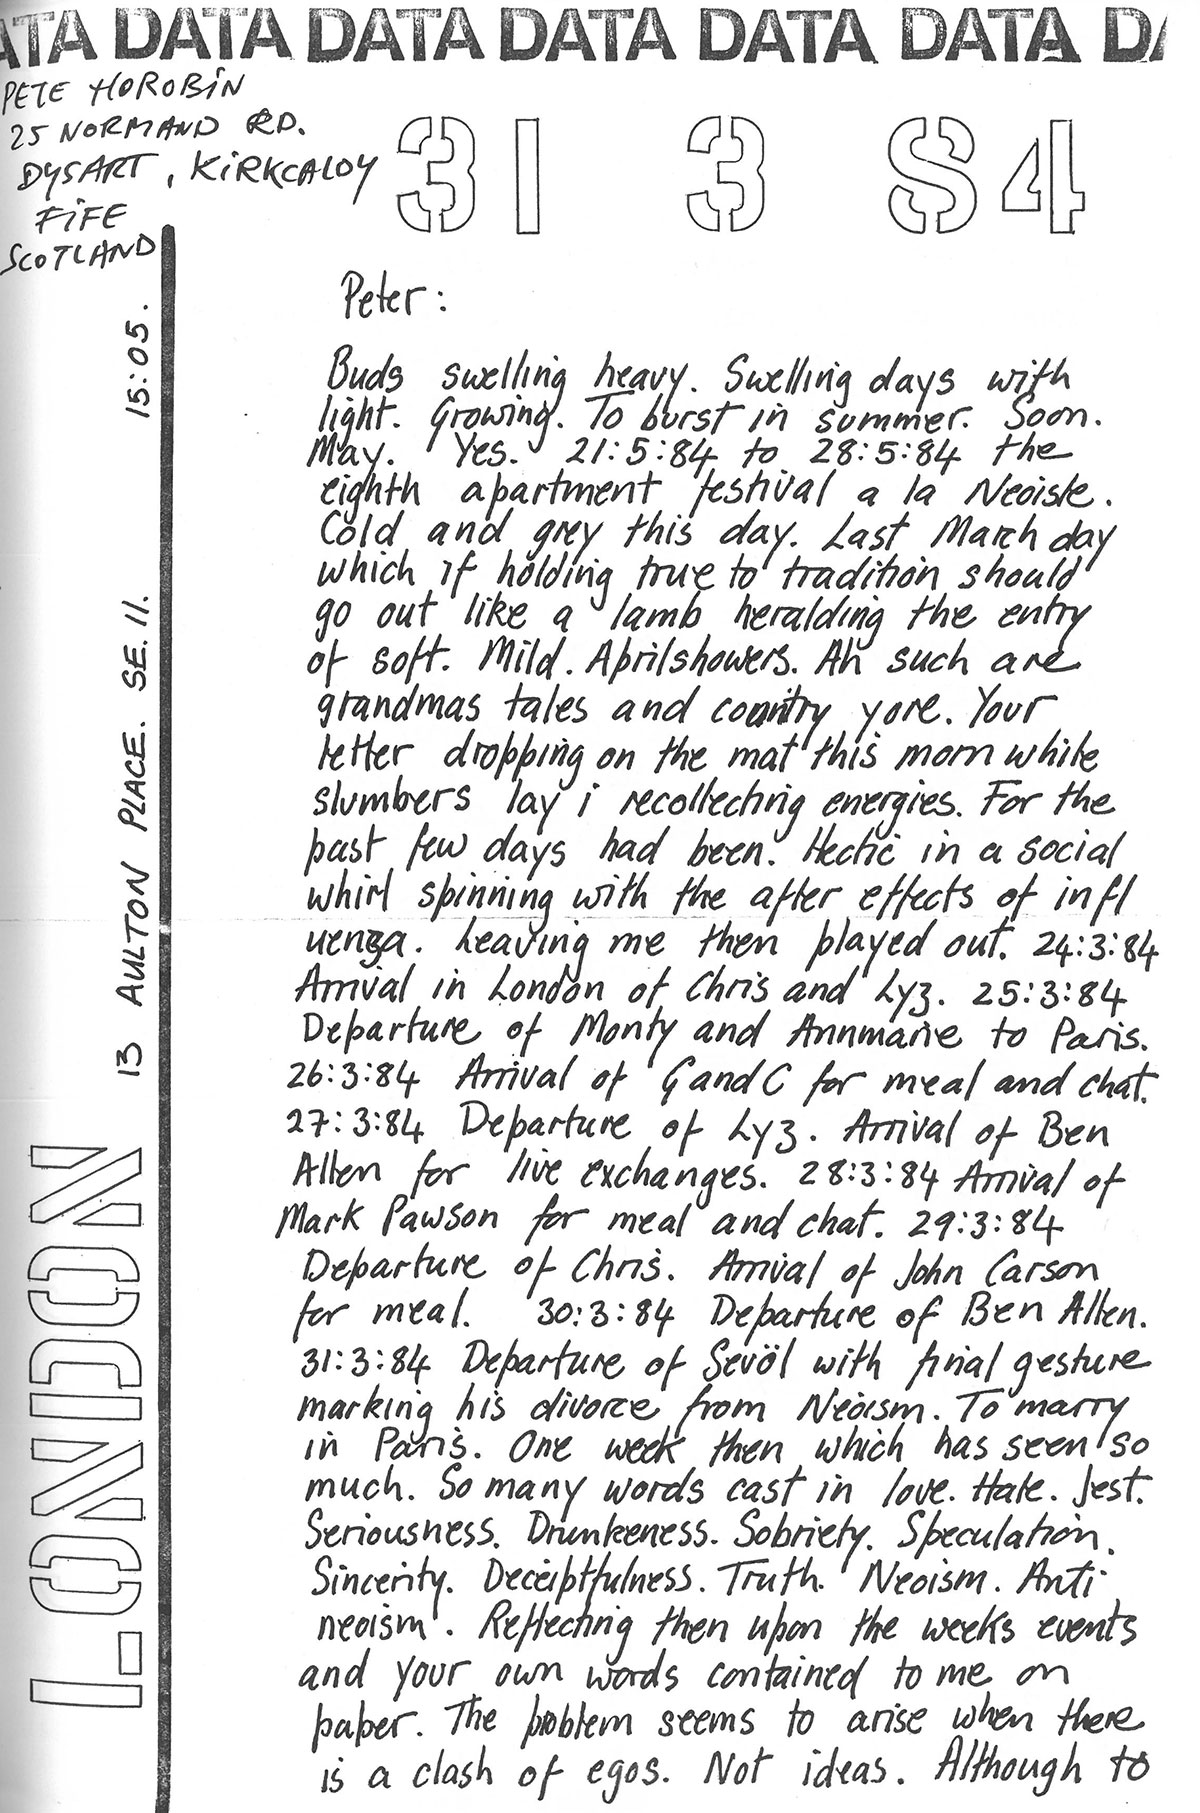 ATA DATA DATA DATA DATA DATA DA
PETE HOROBIN
25 NORMAND RD.
DYSART, KIRKCALDY
FIFE
SCOTLAND
31 3 84
LONDON 13 AULTON PLACE. SE.11. 15:05.
Peter:
Buds swelling heavy. Swelling days with
light. Growing. To burst in summer. Soon.
May. Yes. 21:5:84 to 28:5:84 the
eighth apartment festival a la Neoiste.
Cold and grey this day. Last March day
which if holding true to tradition should
go out like a lamb heralding the entry
of soft. Mild. Aprilshowers. Ah such are
grandmas tales and country yore. Your
letter dropping on the mat this morn while
slumbers lay i recollecting energies. For the
past few days had been. Hectic in a social
whirl spinning with the after effects of infl
uenza. Leaving me then played out. 24:3:84
Arrival in London of Chris and Lyz. 25:3:84
Departure of Monty and Annmarie to Paris.
26:3:84 Arrival of G and C for meal and chat.
27:3:84 Departure of Lyz. Arrival of Ben
Allen for live exchanges. 28:3:84 Arrival of
Mark Pawson for meal and chat. 29:3:84
Departure of Chris. Arrival of John Carson
for meal. 30:3:84 Departure of Ben Allen.
31:3:84 Departure of Sevöl with final gesture
marking his divorce from Neoism. To marry
in Paris. One week then which has seen so
much. So many words cast in love. Hate. Jest.
Seriousness. Drunkeness. Sobriety. Speculation.
Sincerity. Deceiptfulness. Truth. Neoism. Anti
neoism. Reflecting then upon the weeks events
and your own words contained to me on
paper. The problem seems to arise when there
is a clash of egos. Not ideas. Although to